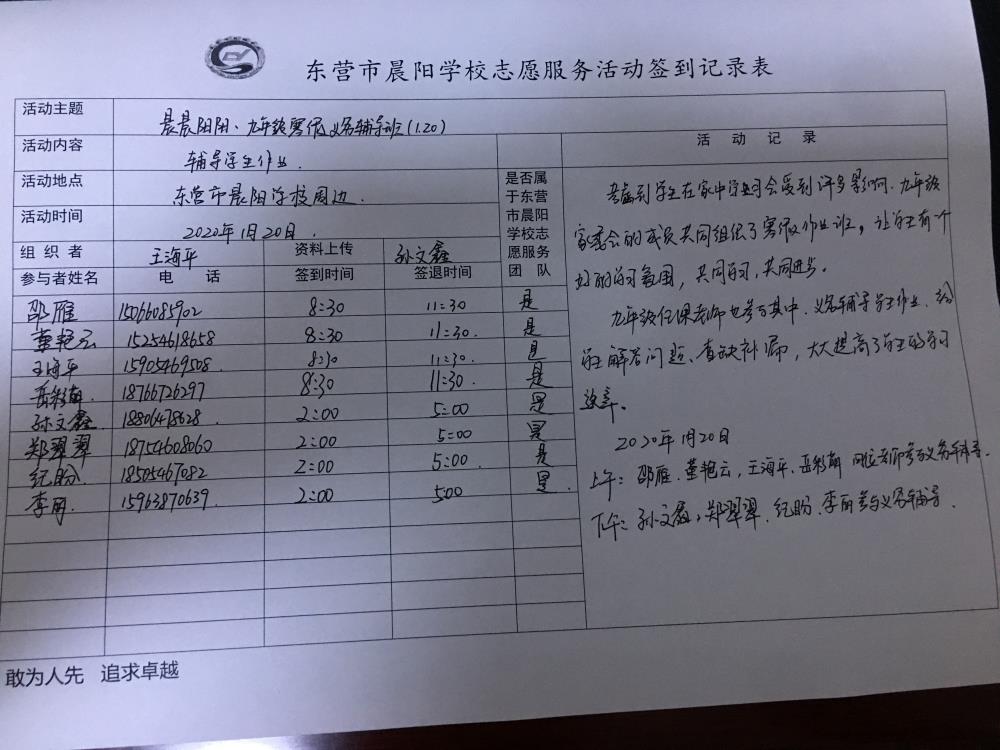 东营市晨阳学校志愿服务活动签到记录表
活动主题 晨晨阳阳、九年级寒假义务辅导班(1.20)
活动内容 辅导学生作业.
活动地点 东营市晨阳学校周边.
活动时间 2020年1月20日.
组织者 王海平 资料上传 孙文鑫
参与者姓名 电话 签到时间 签退时间
是否属
于东营
市晨阳
学校志
愿服务
团队
邵雁 15066085902 8:30 11:30 是
董艳云 15254618658 8:30 11:30. 是
王海平 15905469508 8:30 11:30. 是
岳彩萌 18766726297 8:30 11:30 是
孙文鑫 18806478628 2:00 5:00 是
郑翠翠 18754608060 2:00 5:00 是
纪盼 18505467082 2:00 5:00. 是
李丽 15963870639 2:00 5:00 是.
活动记录
考虑到学生在家中学习会受到许多影响.九年级
家委会的成员共同组织了寒假作业班。让学生有个
好的学习氛围，共同学习，共同进步.
九年级任课老师也参与其中.义务辅导学生作业.给
学生解答问题、查缺补漏，大大提高了学生的学习
效率.
2020年1月20日
上午：邵雁、董艳云，王海平、岳彩萌 四位老师参与义务辅导.
下午：孙文鑫，郑翠翠、纪盼、李丽参与义务辅导.
敢为人先 追求卓越